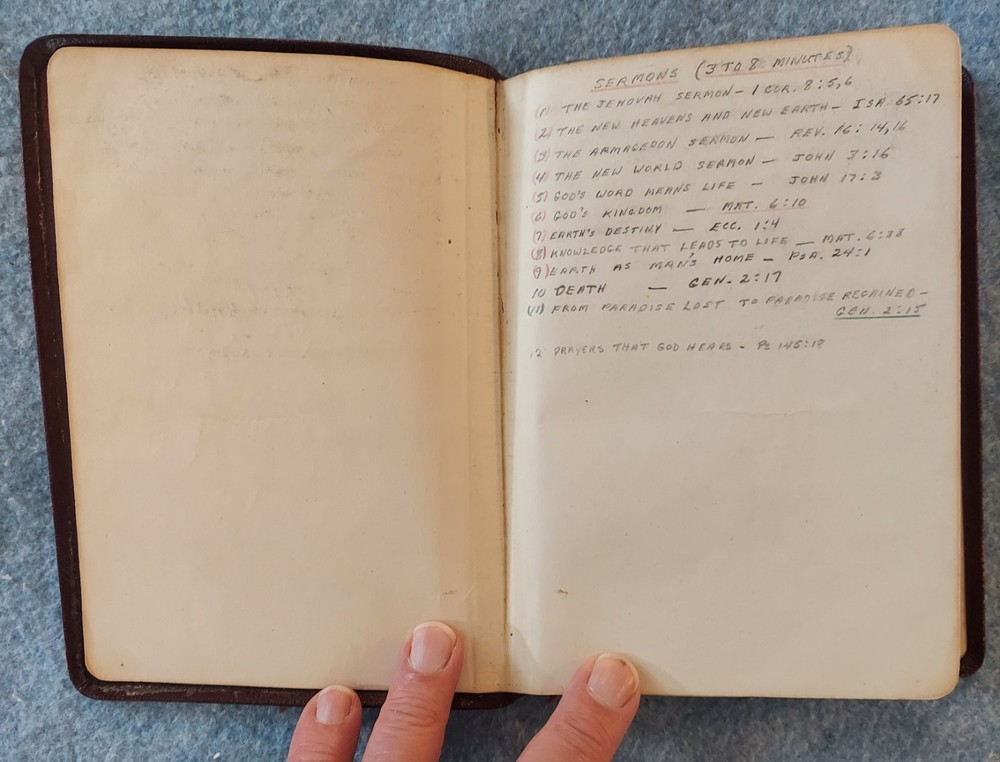 SERMONS (3 TO 8 MINUTES)
(1) THE JEHOVAH SERMON - 1 COR. 8:5,6
(2) THE NEW HEAVENS AND NEW EARTH - ISA 65:17
(3) THE ARMAGEDON SERMON — REV. 16:14,16
(4) THE NEW WORLD SERMON — JOHN 3:16
(5) GOD'S WORD MEANS LIFE — JOHN 17:3
(6) GOD'S KINGDOM — MAT. 6:10
(7) EARTH'S DESTINY — ECC. 1:4
(8) KNOWLEDGE THAT LEADS TO LIFE — MAT. 6:33
(9) EARTH AS MAN'S HOME - PSA. 24:1
10 DEATH — GEN. 2:17
(11) FROM PARADISE LOST TO PARADISE REGAINED -
GEN. 2:15
12 PRAYERS THAT GOD HEARS - Ps 145:18